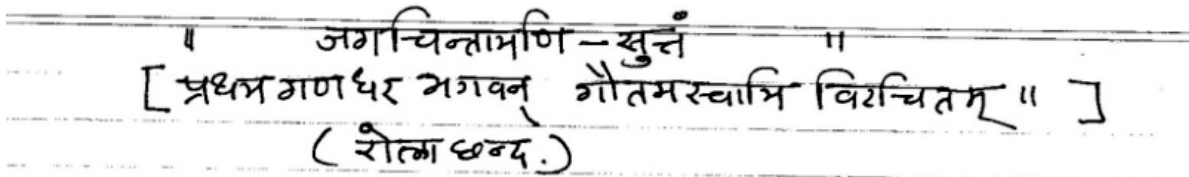 ॥ जगचिन्तामणि - सुत्तं ॥
[ प्रथम गणधर भगवन् गौतमस्वामि विरचितम् ॥ ]
( रोला छन्द. )